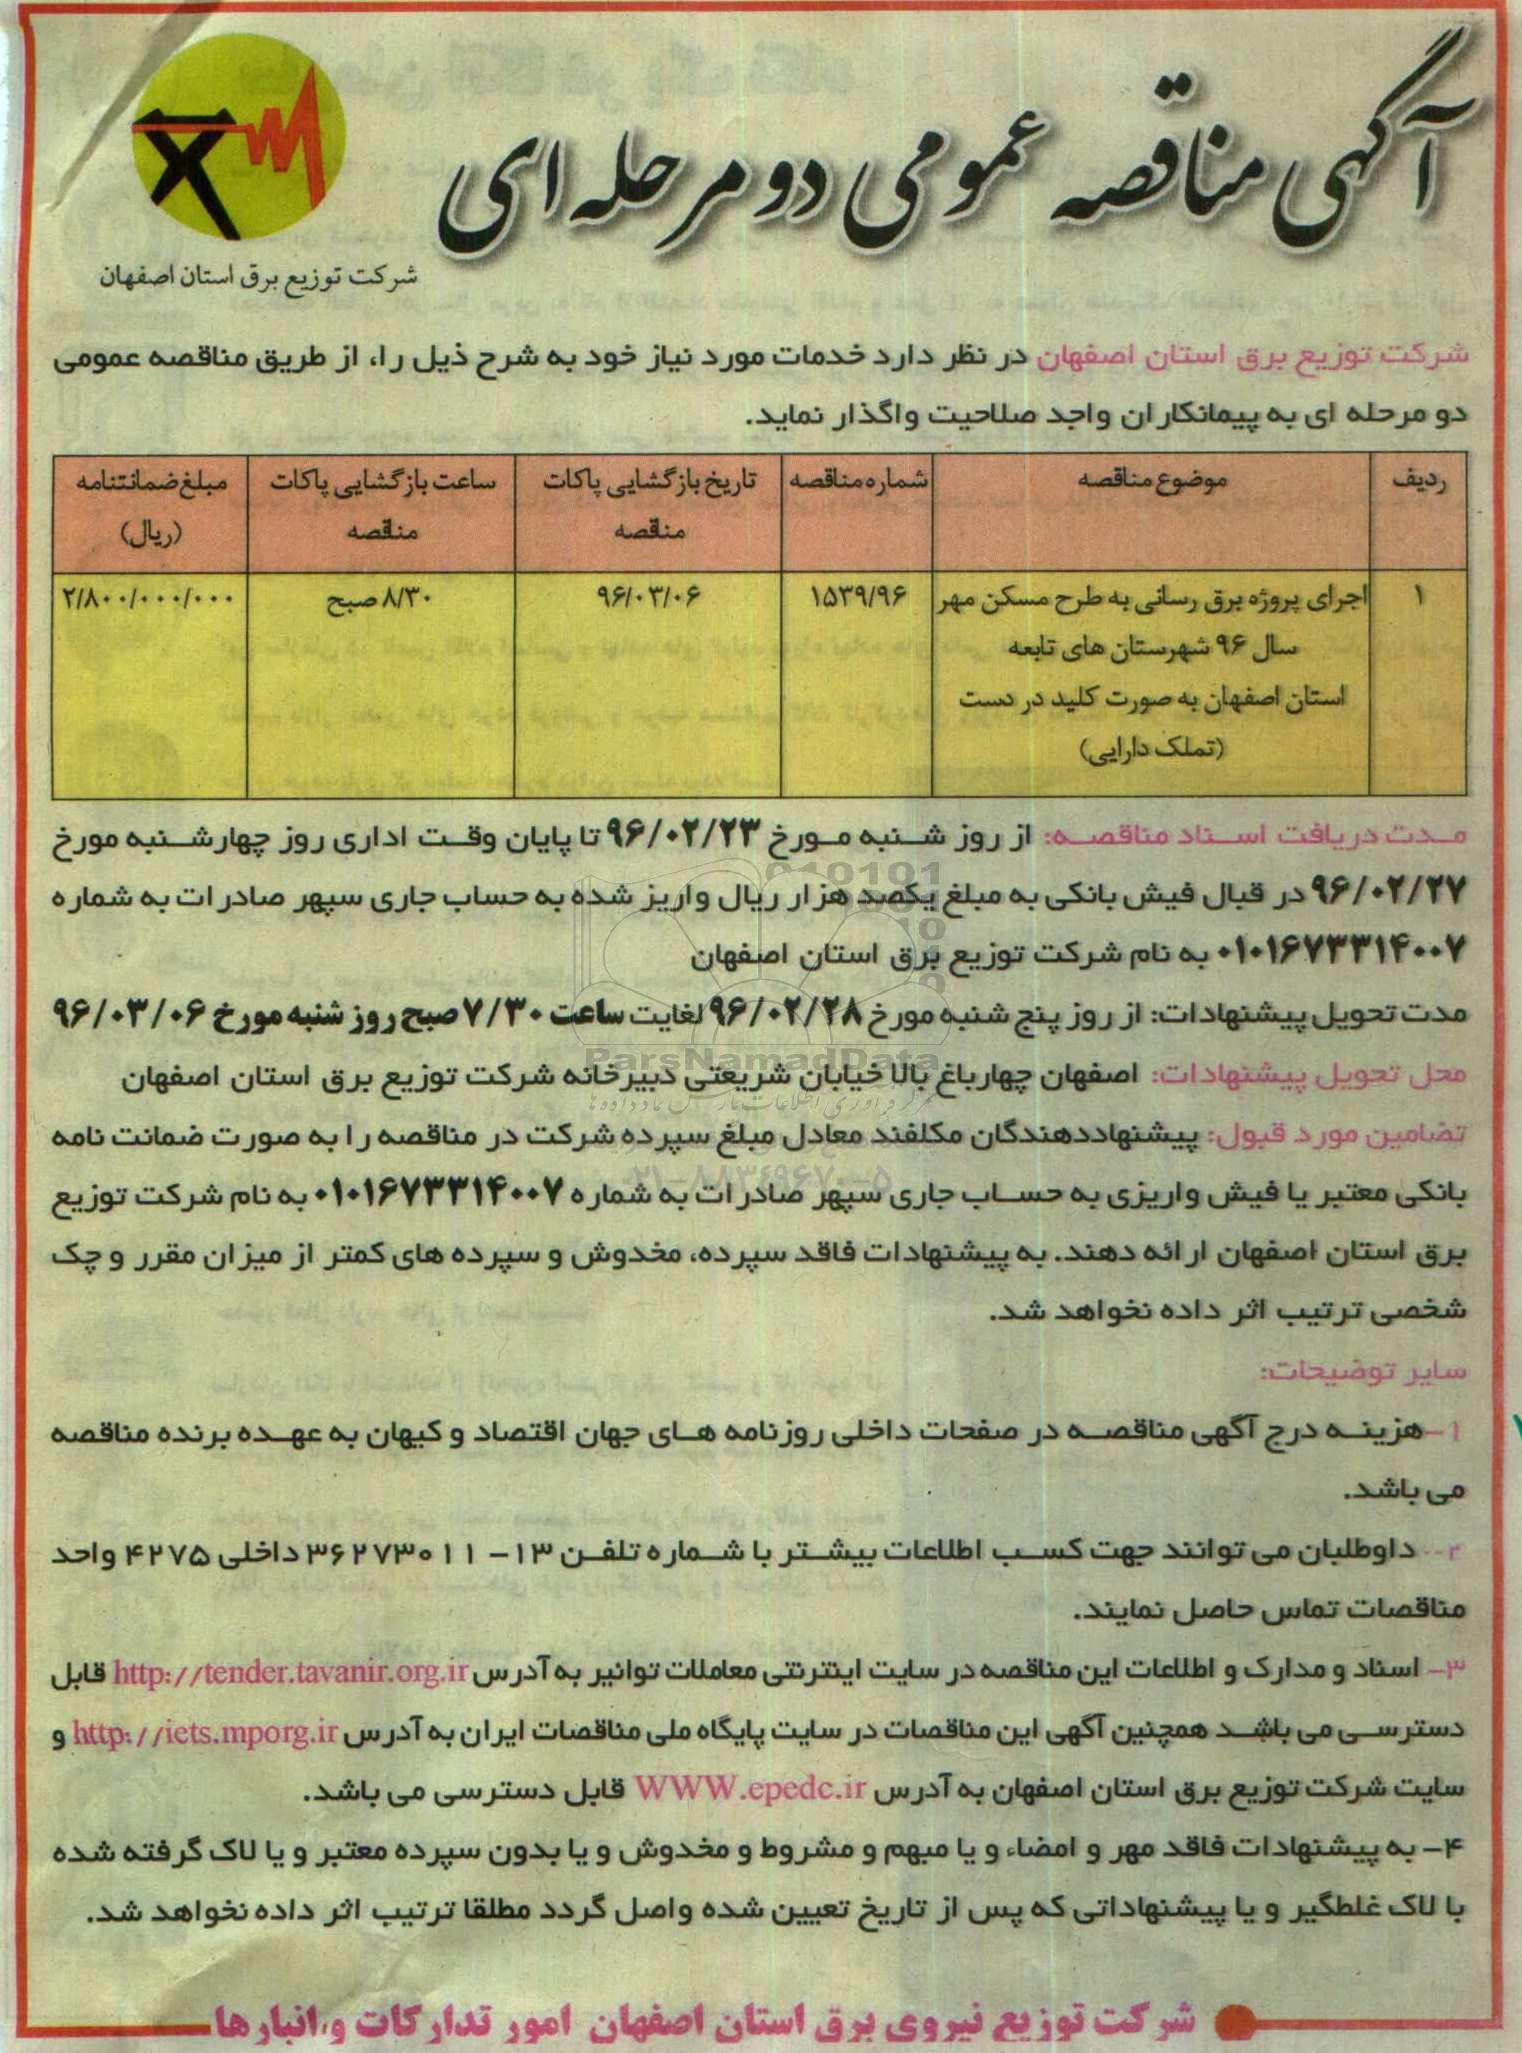 آگهی مناقصه عمومی دو مرحله ای
شرکت توزیع برق استان اصفهان
شرکت توزیع برق استان اصفهان در نظر دارد خدمات مورد نیاز خود به شرح ذیل را، از طریق مناقصه عمومی
دو مرحله ای به پیمانکاران واجد صلاحیت واگذار نماید.
ردیف موضوع مناقصه شماره مناقصه تاریخ بازگشایی پاکات مناقصه ساعت بازگشایی پاکات مناقصه مبلغ ضمانتنامه (ریال)
۱ اجرای پروژه برق رسانی به طرح مسکن مهر ۱۵۳۹/۹۶ ۹۶/۰۳/۰۶ ۸/۳۰ صبح ۲/۸۰۰/۰۰۰/۰۰۰
سال ۹۶ شهرستان های تابعه
استان اصفهان به صورت کلید در دست
(تملک دارایی)
مدت دریافت اسناد مناقصه: از روز شنبه مورخ ۹۶/۰۲/۲۳ تا پایان وقت اداری روز چهارشنبه مورخ
۹۶/۰۲/۲۷ در قبال فیش بانکی به مبلغ یکصد هزار ریال واریز شده به حساب جاری سپهر صادرات به شماره
۰۱۰۱۶۷۳۳۱۴۰۰۷ به نام شرکت توزیع برق استان اصفهان
مدت تحویل پیشنهادات: از روز پنج شنبه مورخ ۹۶/۰۲/۲۸ لغایت ساعت ۷/۳۰ صبح روز شنبه مورخ ۹۶/۰۳/۰۶
ParsNamadData
محل تحویل پیشنهادات: اصفهان چهارباغ بالا خیابان شریعتی دبیرخانه شرکت توزیع برق استان اصفهان
تضامین مورد قبول: پیشنهاددهندگان مکلفند معادل مبلغ سپرده شرکت در مناقصه را به صورت ضمانت نامه
۰۲۱-۸۸۳۴۹۶۷۰-۵
بانکی معتبر یا فیش واریزی به حساب جاری سپهر صادرات به شماره ۰۱۰۱۶۷۳۳۱۴۰۰۷ به نام شرکت توزیع
برق استان اصفهان ارائه دهند. به پیشنهادات فاقد سپرده، مخدوش و سپرده های کمتر از میزان مقرر و چک
شخصی ترتیب اثر داده نخواهد شد.
سایر توضیحات:
۱-هزینه درج آگهی مناقصه در صفحات داخلی روزنامه های جهان اقتصاد و کیهان به عهده برنده مناقصه
می باشد.
۲- داوطلبان می توانند جهت کسب اطلاعات بیشتر با شماره تلفن ۱۳- ۳۶۲۷۳۰۱۱ داخلی ۴۲۷۵ واحد
مناقصات تماس حاصل نمایند.
۳- اسناد و مدارک و اطلاعات این مناقصه در سایت اینترنتی معاملات توانیر به آدرس http://tender.tavanir.org.ir قابل
دسترسی می باشد همچنین آگهی این مناقصات در سایت پایگاه ملی مناقصات ایران به آدرس http://iets.mporg.ir و
سایت شرکت توزیع برق استان اصفهان به آدرس WWW.epedc.ir قابل دسترسی می باشد.
۴- به پیشنهادات فاقد مهر و امضاء و یا مبهم و مشروط و مخدوش و یا بدون سپرده معتبر و یا لاک گرفته شده
با لاک غلطگیر و یا پیشنهاداتی که پس از تاریخ تعیین شده واصل گردد مطلقا ترتیب اثر داده نخواهد شد.
شرکت توزیع نیروی برق استان اصفهان امور تدارکات و انبارها